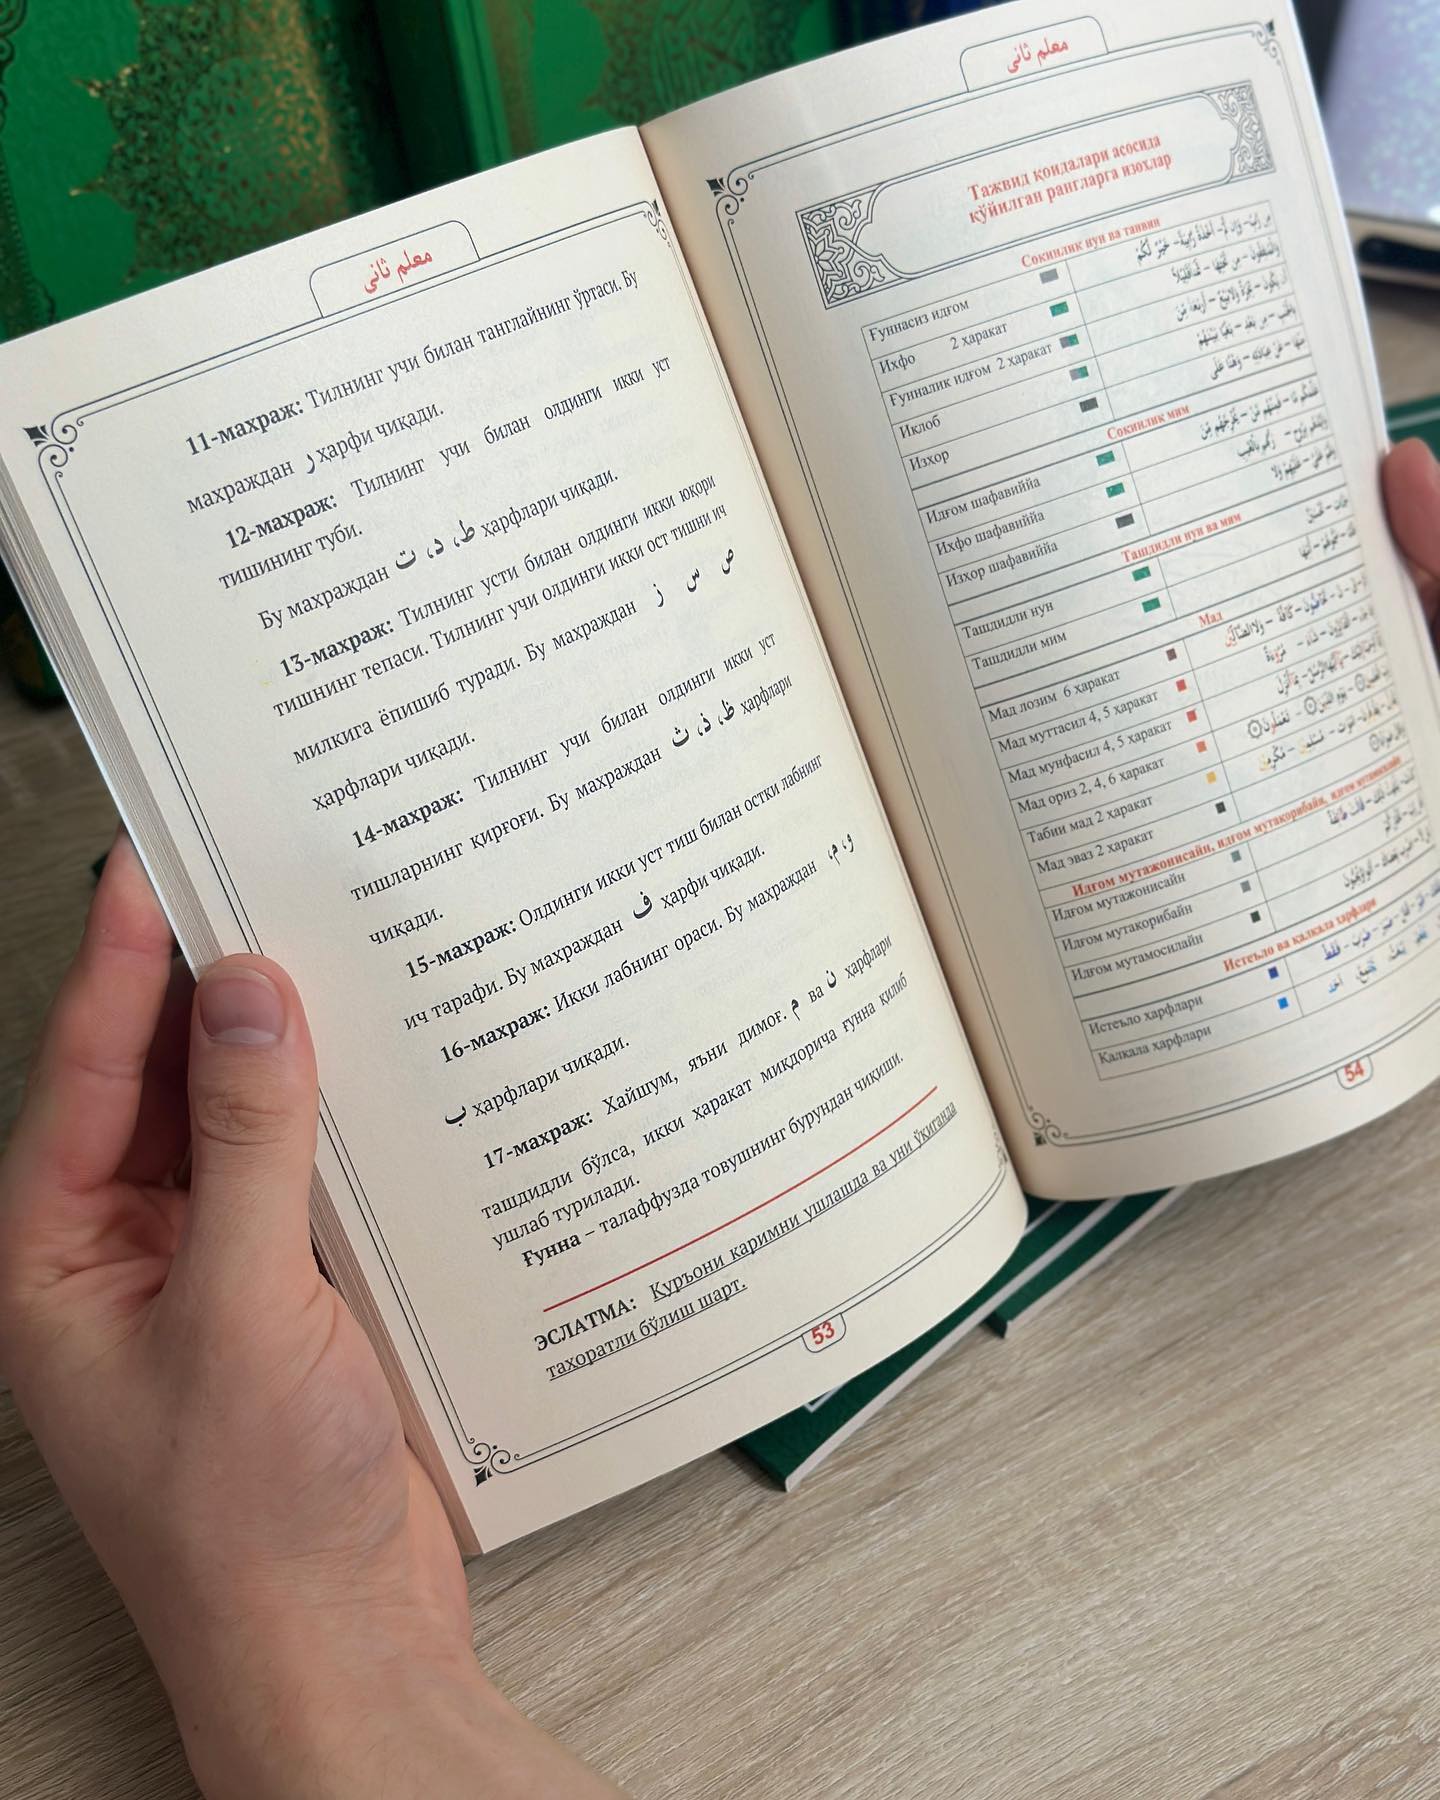 معلم ثانی
11-махраж: Тилнинг учи билан танглайнинг ўртаси. Бу
махраждан ر ҳарфи чиқади.
12-махраж: Тилнинг учи билан олдинги икки уст
тишининг туби.
Бу махраждан ط، د، ت ҳарфлари чиқади.
13-махраж: Тилнинг усти билан олдинги икки юқори
тишнинг тепаси. Тилнинг учи олдинги икки ост тишни ич
милкига ёпишиб туради. Бу махраждан ص س ز
ҳарфлари чиқади.
14-махраж: Тилнинг учи билан олдинги икки уст
тишларнинг қирғоғи. Бу махраждан ظ، ذ، ث ҳарфлари
чиқади.
15-махраж: Олдинги икки уст тиш билан остки лабнинг
ич тарафи. Бу махраждан ف ҳарфи чиқади.
16-махраж: Икки лабнинг ораси. Бу махраждан و، م،
ب ҳарфлари чиқади.
17-махраж: Хайшум, яъни димоғ. م ва ن ҳарфлари
ташдидли бўлса, икки ҳаракат миқдорича ғунна қилиб
ушлаб турилади.
Ғунна – талаффузда товушнинг бурундан чиқиши.
ЭСЛАТМА: Қуръони каримни ушлашда ва уни ўқиганда
таҳоратли бўлиш шарт.
53
معلم ثانی
Тажвид қоидалари асосида
қўйилган рангларга изоҳлар
Сокинлик нун ва танвин
Ғуннасиз идғом
Ихфо 2 ҳаракат
Ғунналик идғом 2 ҳаракат
Иклоб
Изҳор
Сокинлик мим
Идғом шафавиййа
Ихфо шафавиййа
Изҳор шафавиййа
Ташдидли нун ва мим
Ташдидли нун
Ташдидли мим
Мад
Мад лозим 6 ҳаракат
Мад муттасил 4, 5 ҳаракат
Мад мунфасил 4, 5 ҳаракат
Мад ориз 2, 4, 6 ҳаракат
Табии мад 2 ҳаракат
Мад эваз 2 ҳаракат
Идғом мутажонисайн, идғом мутакорибайн, идғом мутамосилайн
Идғом мутажонисайн
Идғом мутакорибайн
Идғом мутамосилайн
Истеъло ва қалқала ҳарфлари
Истеъло ҳарфлари
Қалқала ҳарфлари
54